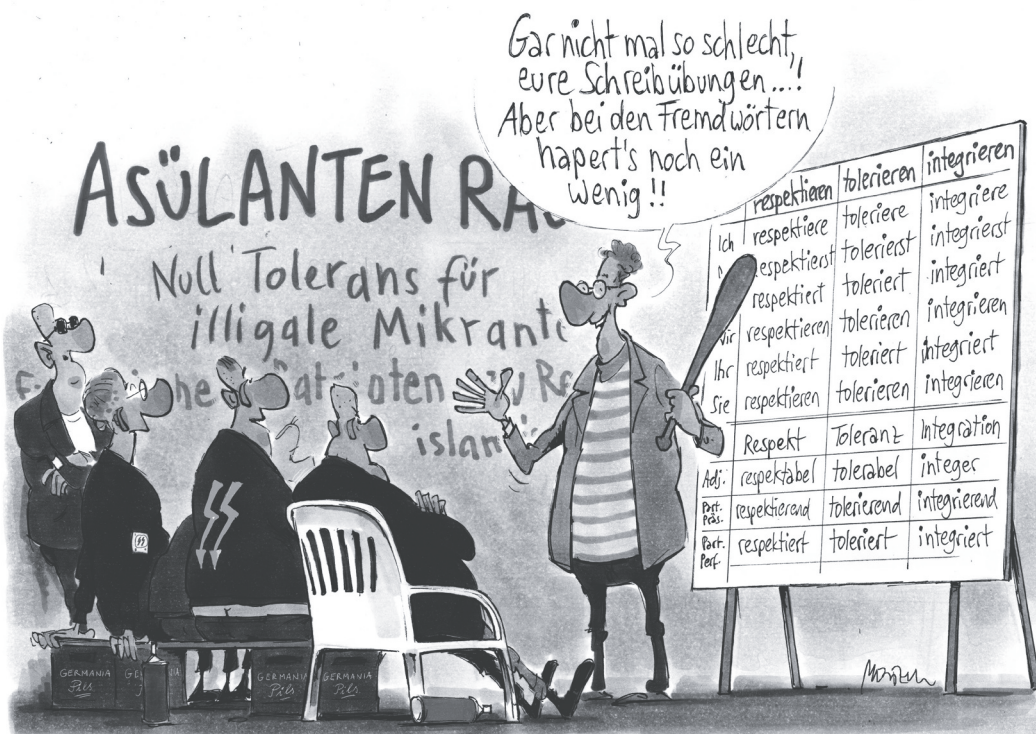 Gar nicht mal so schlecht,
eure Schreibübungen....!
Aber bei den Fremdwörtern
hapert's noch ein
wenig!!
ASÜLANTEN
Null Tolerans für
illigale
islam
respektieren tolerieren integrieren
Ich respektiere toleriere integriere
respektierst tolerierst integrierst
respektiert toleriert integriert
wir respektieren tolerieren integrieren
Ihr respektiert toleriert integriert
Sie respektieren tolerieren integrieren
Respekt Toleranz Integration
Adj. respektabel tolerabel integer
Part. Präs. respektierend tolerierend integrierend
Part. Perf. respektiert toleriert integriert
GERMANIA
Pils
GERMANIA
Pils
GERMANIA
Pils